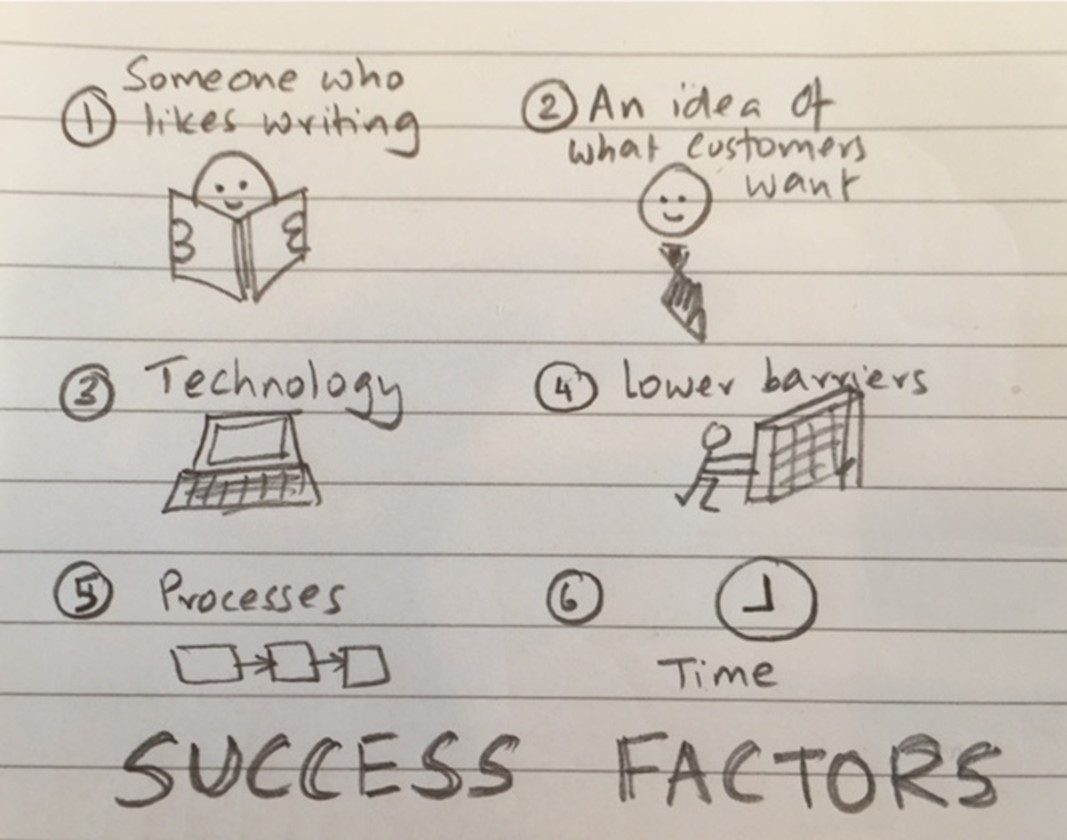 ① Someone who
likes writing
② An idea of
what customers
want
③ Technology
④ Lower barriers
⑤ Processes
⑥
Time
SUCCESS FACTORS